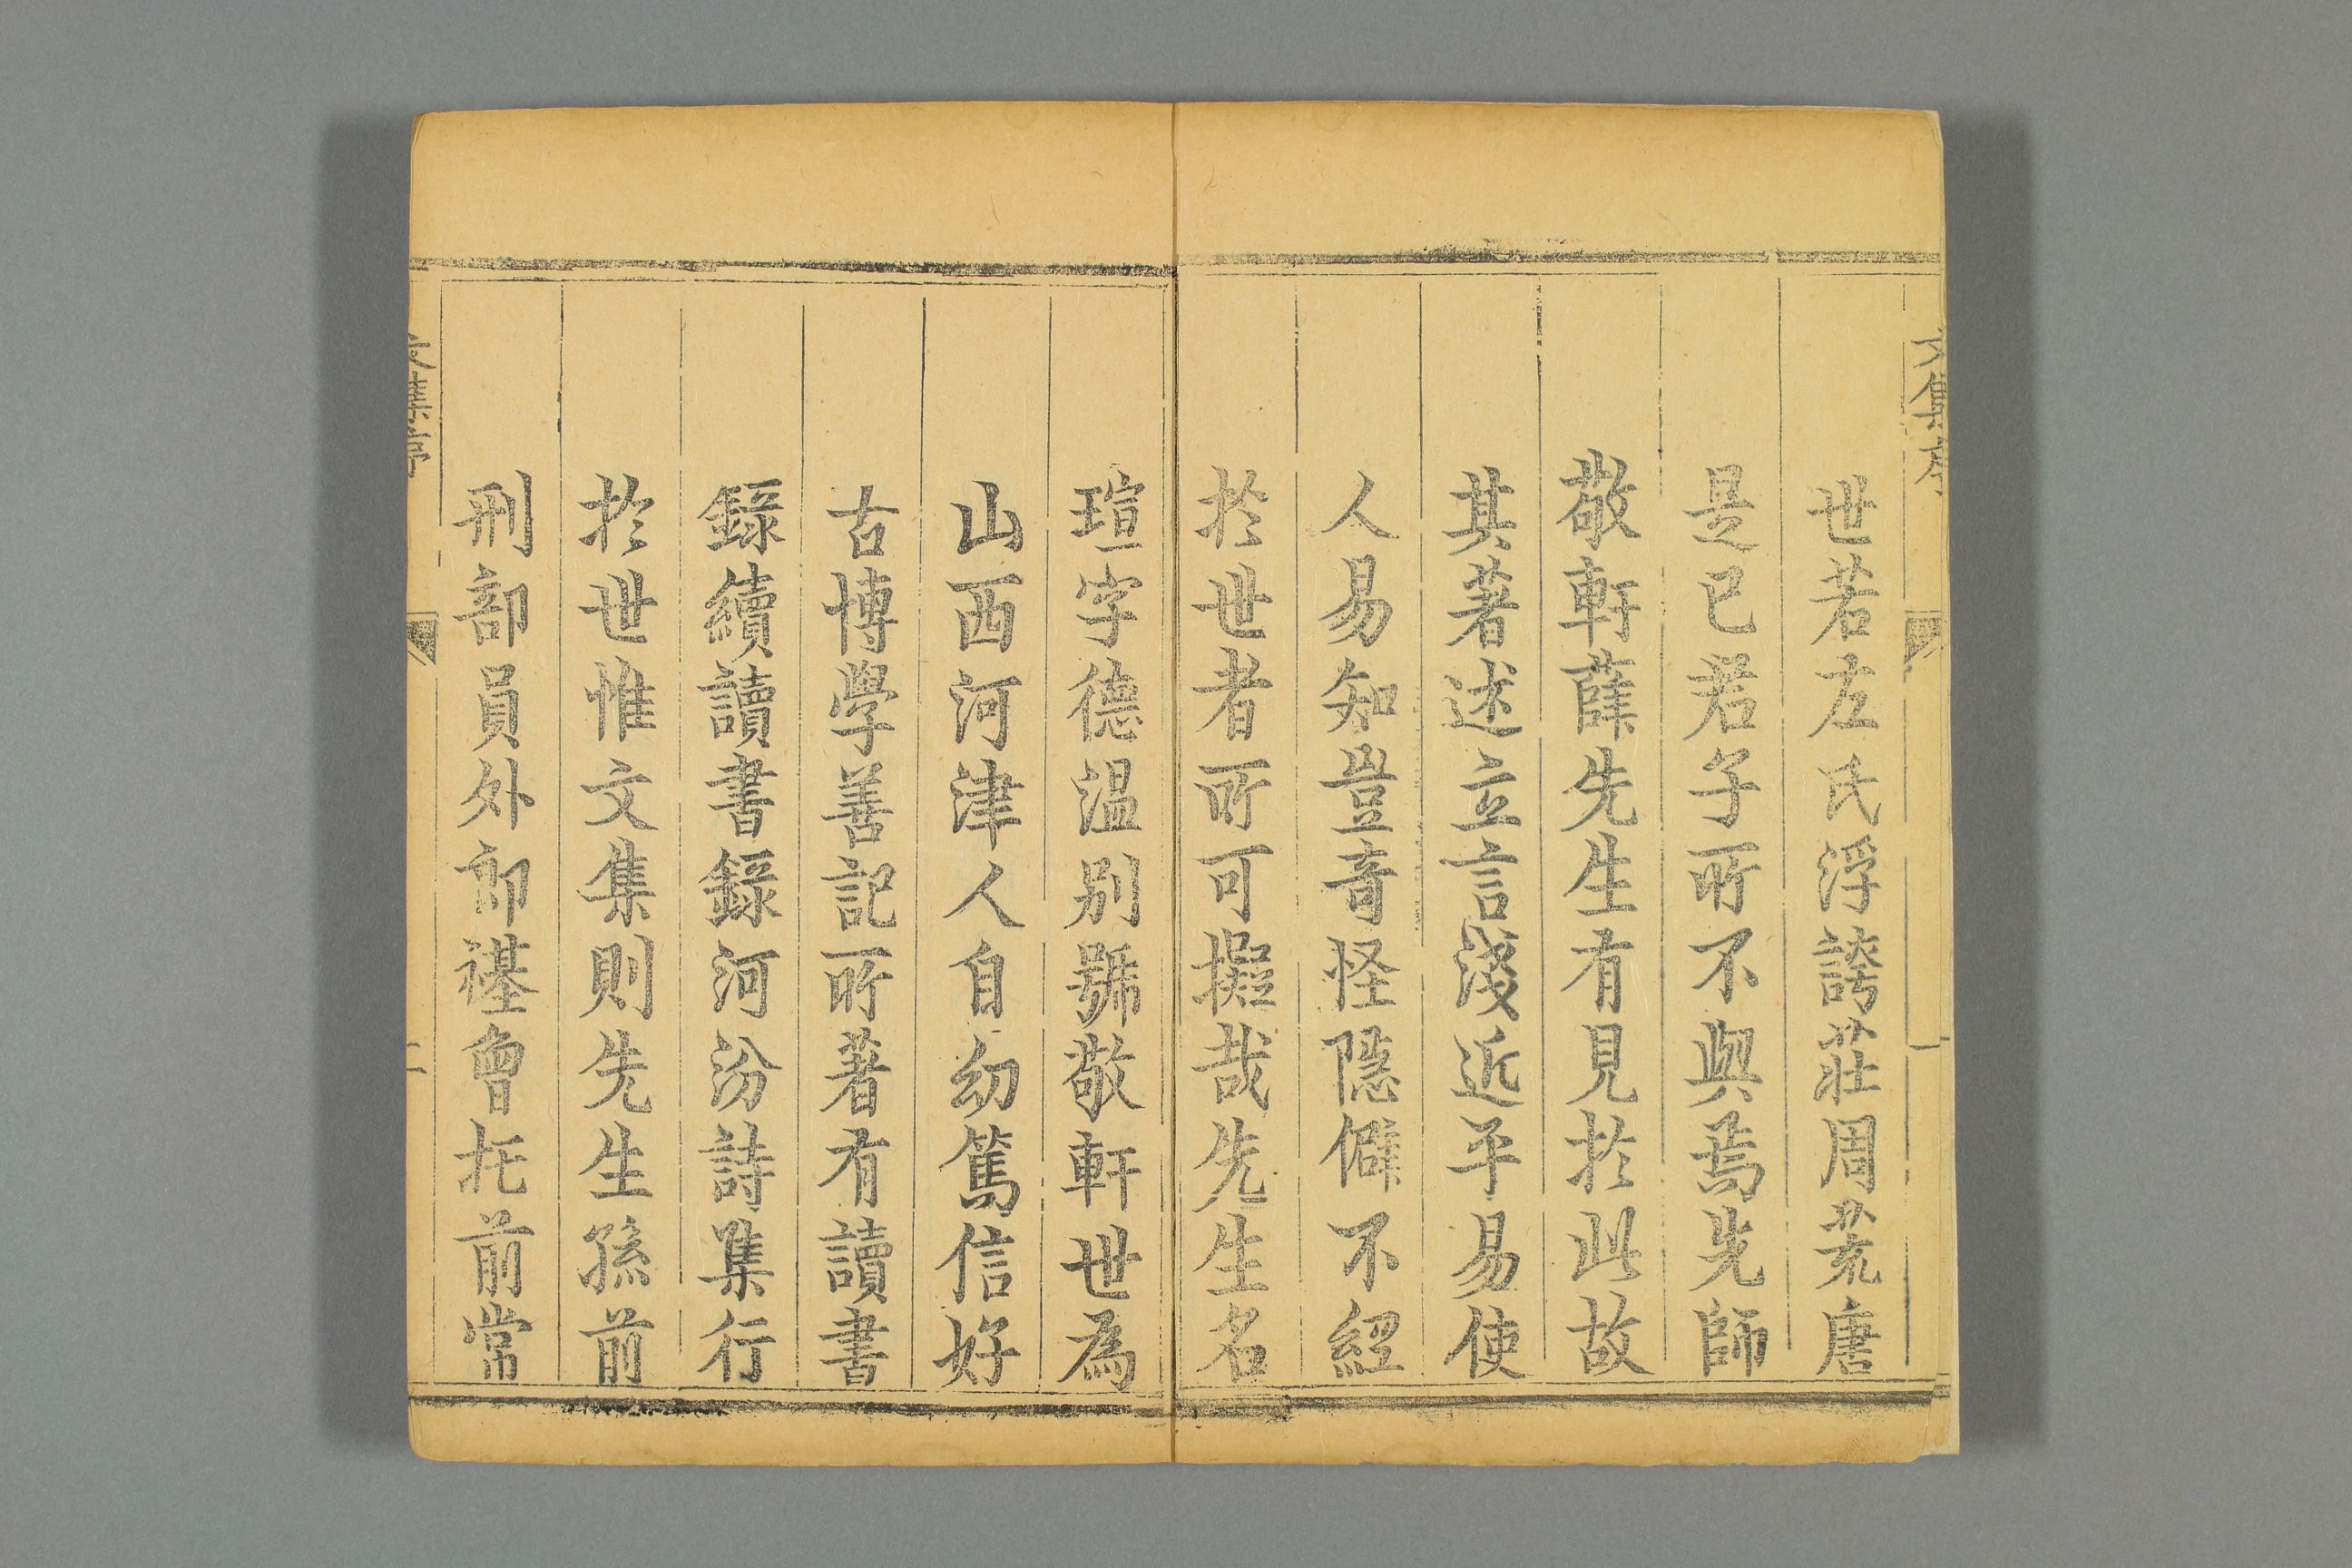 世若左氏浮誇莊周荒唐
是已君子所不與焉先師
敬軒薛先生有見於此故
其著述立言淺近平易使
人易知豈奇怪隱僻不經
於世者所可擬哉先生名
瑄字德溫別號敬軒世為
山西河津人自幼篤信好
古博學善記所著有讀書
錄續讀書錄河汾詩集行
於世惟文集則先生孫前
刑部員外郎禥曾托前常